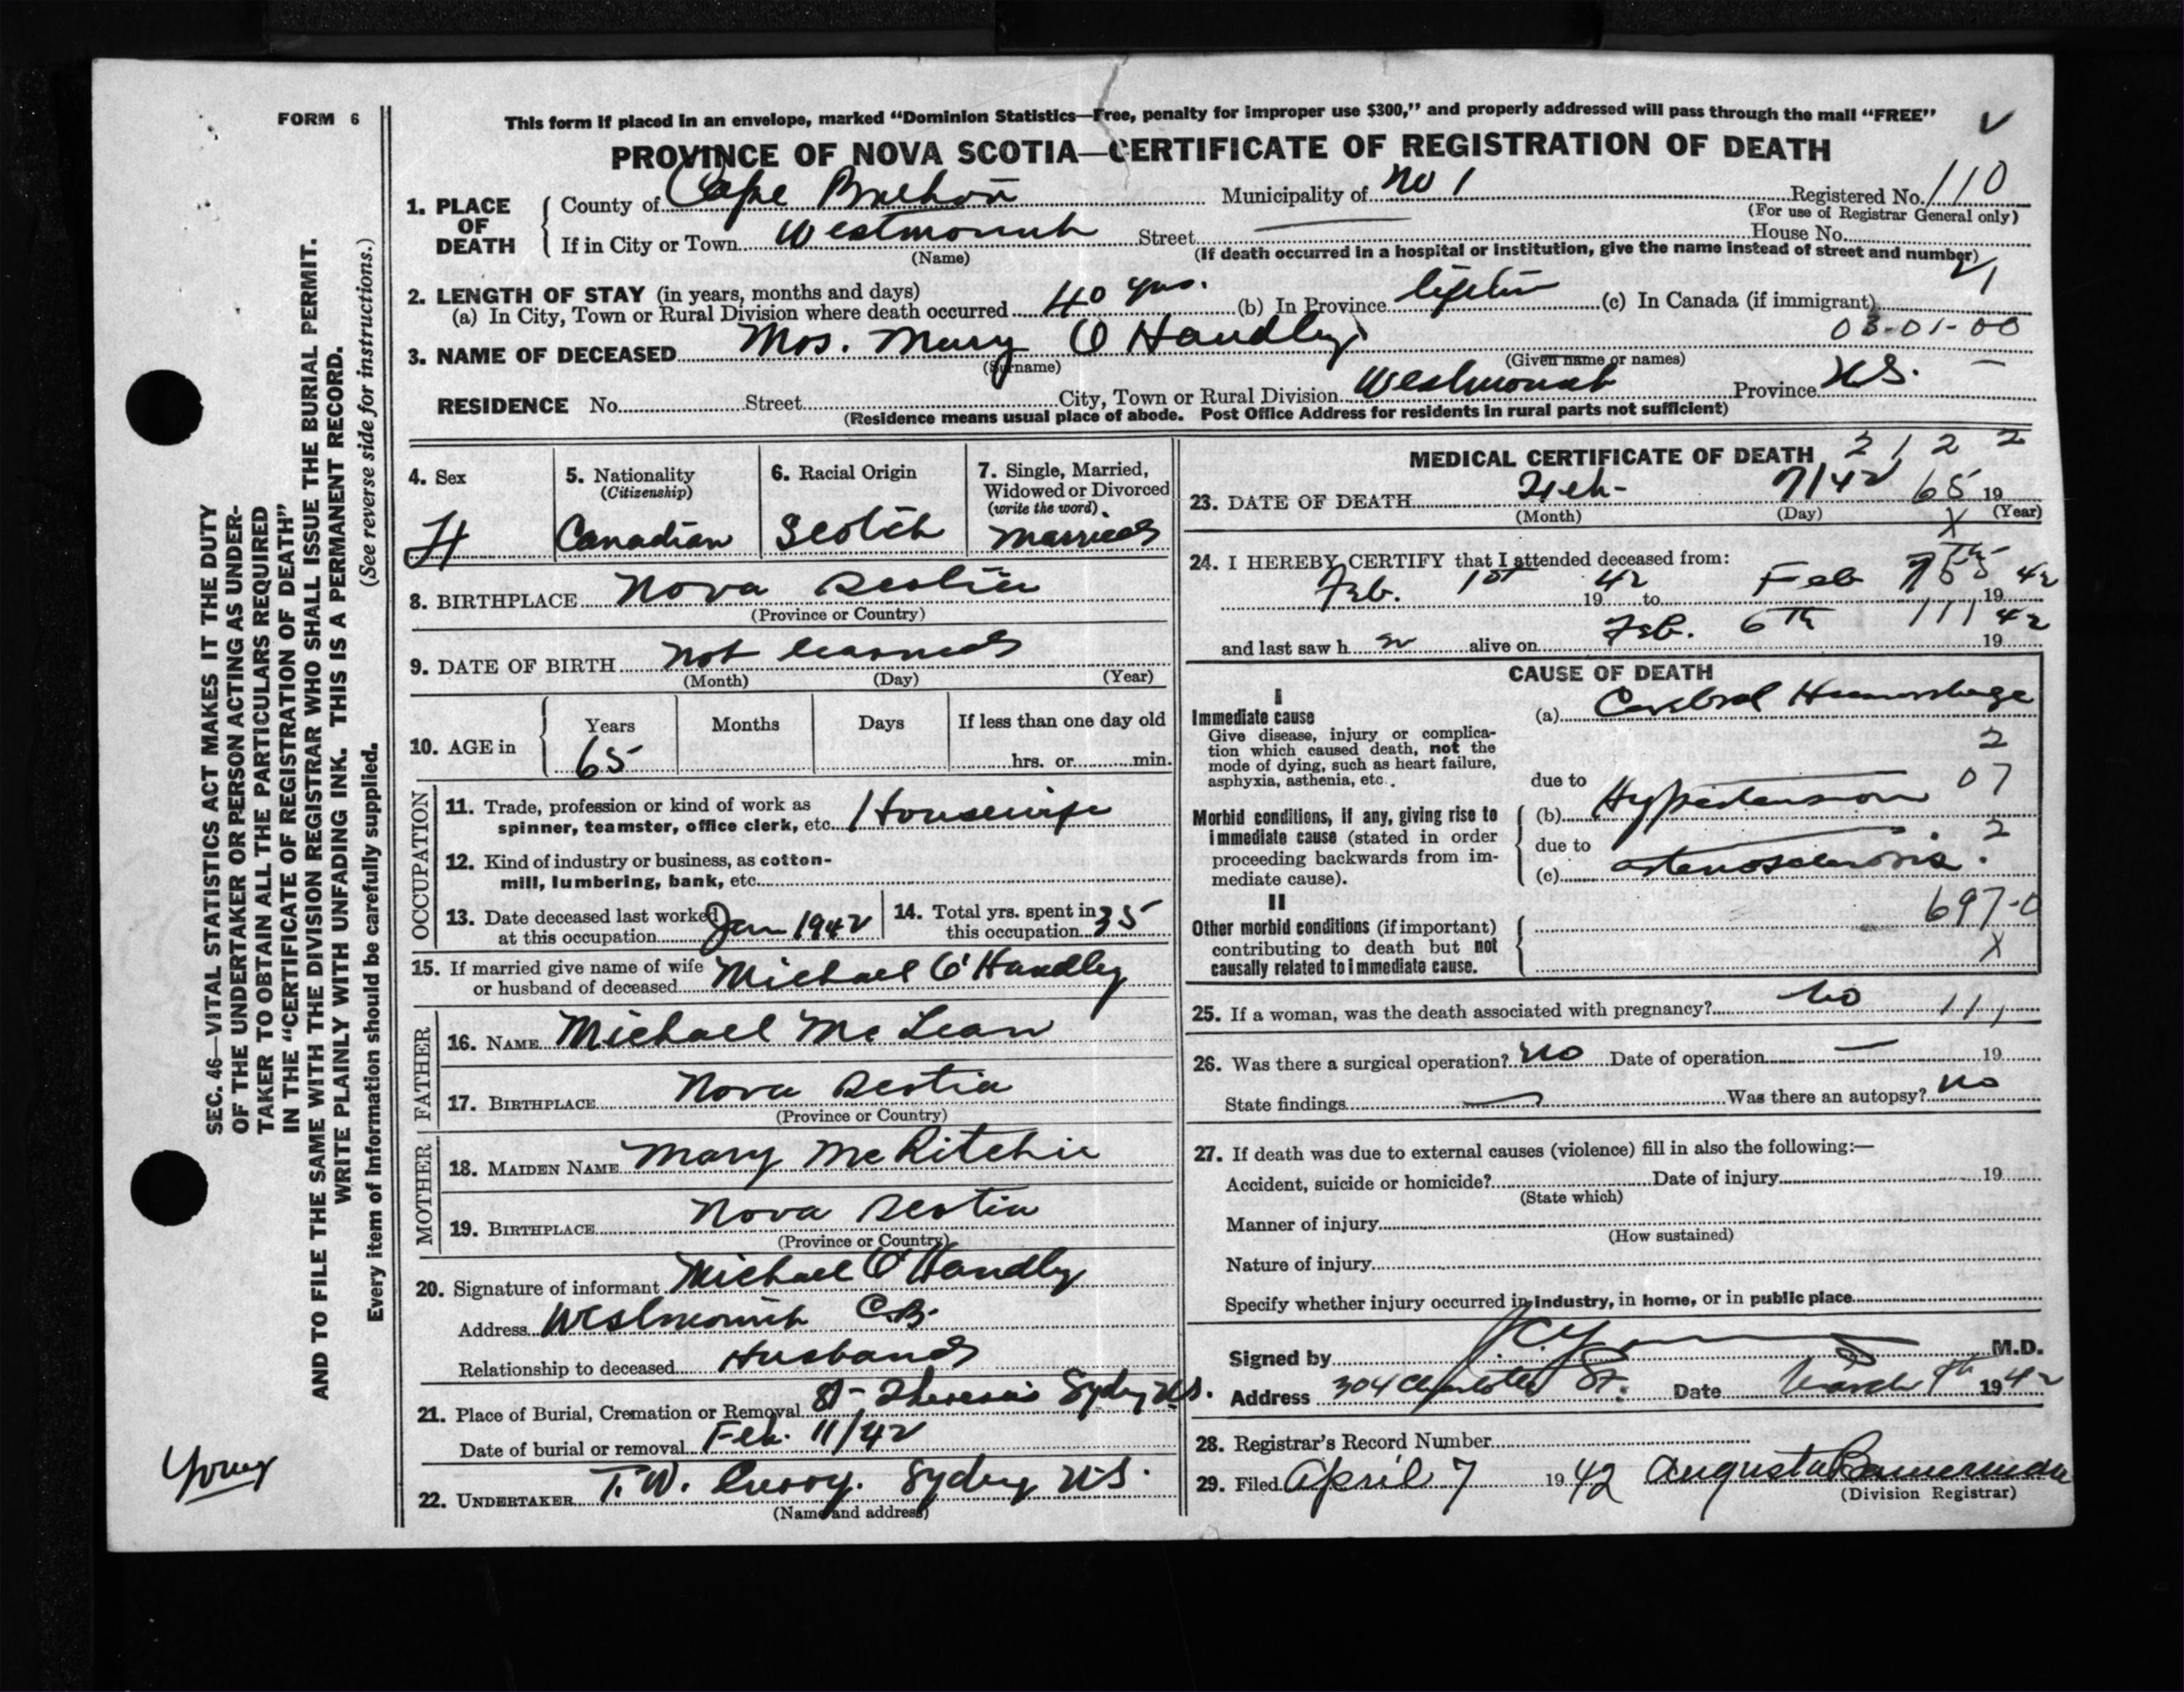 FORM 6
This form if placed in an envelope, marked “Dominion Statistics—Free, penalty for improper use $300,” and properly addressed will pass through the mail “FREE”
PROVINCE OF NOVA SCOTIA—CERTIFICATE OF REGISTRATION OF DEATH
1. PLACE OF DEATH
County of Cape Breton Municipality of No 1 Registered No. 110
(For use of Registrar General only)
If in City or Town Westmount Street House No.
(Name) (If death occurred in a hospital or institution, give the name instead of street and number)
2. LENGTH OF STAY (in years, months and days)
(a) In City, Town or Rural Division where death occurred 40 yrs. (b) In Province lifetime (c) In Canada (if immigrant)
03-01-00
3. NAME OF DECEASED Mrs. Mary O Handley
(Surname) (Given name or names)
RESIDENCE No. Street City, Town or Rural Division Westmount Province N.S.
(Residence means usual place of abode. Post Office Address for residents in rural parts not sufficient)
4. Sex F
5. Nationality (Citizenship) Canadian
6. Racial Origin Scotch
7. Single, Married, Widowed or Divorced (write the word) Married
8. BIRTHPLACE Nova Scotia
(Province or Country)
9. DATE OF BIRTH Not learned
(Month) (Day) (Year)
10. AGE in Years Months Days If less than one day old
65 hrs. or min.
OCCUPATION
11. Trade, profession or kind of work as
spinner, teamster, office clerk, etc. Housewife
12. Kind of industry or business, as cotton-
mill, lumbering, bank, etc.
13. Date deceased last worked
at this occupation Jan 1942
14. Total yrs. spent in
this occupation 35
15. If married give name of wife
or husband of deceased Michael O'Handley
FATHER
16. NAME Michael McLean
17. BIRTHPLACE Nova Scotia
(Province or Country)
MOTHER
18. MAIDEN NAME Mary McRitchie
19. BIRTHPLACE Nova Scotia
(Province or Country)
20. Signature of informant Michael O'Handley
Address Westmount C.B.
Relationship to deceased Husband
21. Place of Burial, Cremation or Removal St. Theresa's Sydney N.S.
Date of burial or removal Feb. 11/42
22. UNDERTAKER T.W. Curry. Sydney N.S.
(Name and address)
MEDICAL CERTIFICATE OF DEATH 2 1 2 2
23. DATE OF DEATH Feb- 7/42 65 19
(Month) (Day) (Year)
X
24. I HEREBY CERTIFY that I attended deceased from:
Feb. 1st 1942 to Feb 7th 55 1942
and last saw her alive on Feb. 6th 111 1942
CAUSE OF DEATH
I
Immediate cause
Give disease, injury or complica-
tion which caused death, not the
mode of dying, such as heart failure,
asphyxia, asthenia, etc.
(a) Cerebral Hemorrhage
2
due to 07
Morbid conditions, if any, giving rise to
immediate cause (stated in order
proceeding backwards from im-
mediate cause).
(b) Hypertension
due to 2
(c) arteriosclerosis.
II
697-0
Other morbid conditions (if important)
contributing to death but not
causally related to immediate cause.
X
25. If a woman, was the death associated with pregnancy? No 111
26. Was there a surgical operation? No Date of operation — 19
State findings — Was there an autopsy? No
27. If death was due to external causes (violence) fill in also the following:—
Accident, suicide or homicide? Date of injury 19
(State which)
Manner of injury
(How sustained)
Nature of injury
Specify whether injury occurred in industry, in home, or in public place
Signed by M.D.
Address 304 Charlotte St. Date March 9th 1942
28. Registrar's Record Number
29. Filed April 7 1942 Augusta
(Division Registrar)
SEC. 46—VITAL STATISTICS ACT MAKES IT THE DUTY
OF THE UNDERTAKER OR PERSON ACTING AS UNDER-
TAKER TO OBTAIN ALL THE PARTICULARS REQUIRED
IN THE “CERTIFICATE OF REGISTRATION OF DEATH”
AND TO FILE THE SAME WITH THE DIVISION REGISTRAR WHO SHALL ISSUE THE BURIAL PERMIT.
WRITE PLAINLY WITH UNFADING INK. THIS IS A PERMANENT RECORD.
Every item of information should be carefully supplied. (See reverse side for instructions.)